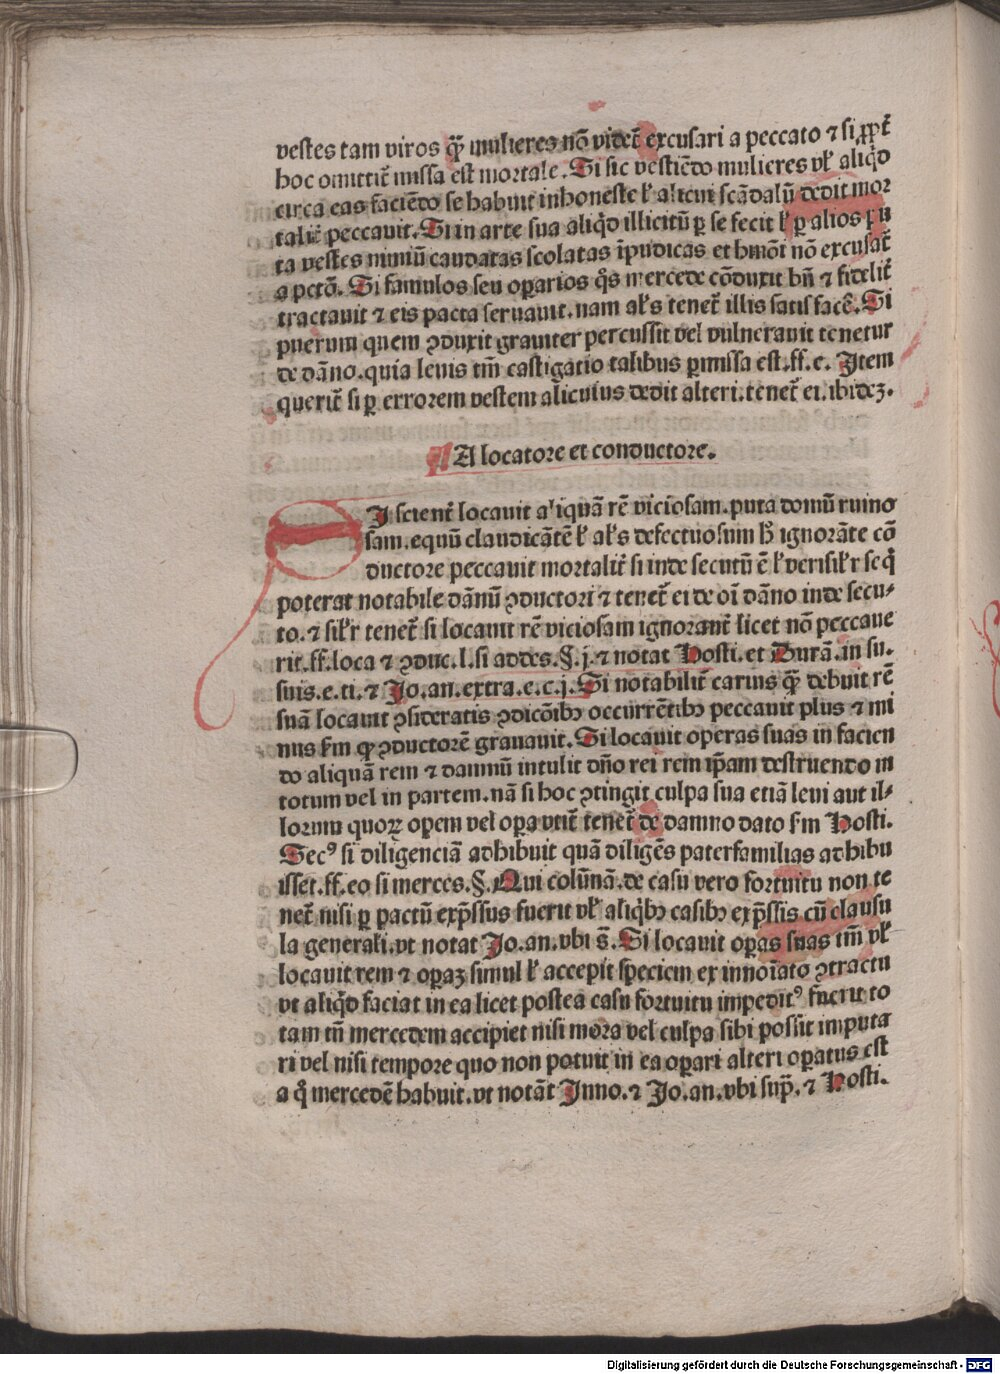 vestes tam viros qꝫ mulieres nō vidēt̄ excusari a peccato ⁊ si ꝓpt̄
hoc omittit̄ missa est mortale. Si sic vestiēdo mulieres vꝉ aliq̇d
circa eas faciēdo se habuit inhoneste ꝉ alicui scādalū dedit mor
talit̄ peccauit. Si in arte sua aliq̇d illicitū ꝑ se fecit ꝉ ꝑ alios pu
ta vestes nimiū caudatas scolatas īpudicas et hmōi nō excusat̄
a pctō. Si famulos seu oꝑarios q̇s mercede cōduxit bn̄ ⁊ fidelit̄
tractauit ⁊ eis pacta seruauit. nam alꝰs tenet̄ illis satisfacē. Si
puerum quem ↄduxit grauiter percussit vel vulnerauit tenetur
de dāno. quia leuis tm̄ castigatio talibus ꝑmissa est. ff. e. Item
querit̄ si ꝑ errorem vestem alicuius dedit alteri. tenet̄ ei. ibideꝫ.
¶ A locatore et conductore.
Si scient̄ locauit aliquā rē viciosam. puta domū ruino
sam. equū claudicātē ꝉ alꝰs defectuosum hꝫ ignorāte cō
ductore peccauit mortalit̄ si inde secutū ē ꝉ verisilꝉr seq̇
poterat notabile dānū ↄductori ⁊ tenet̄ ei de oī dāno inde secu⸗
to. ⁊ silꝉr tenet̄ si locauit rē viciosam ignorant̄ licet nō peccaue
rit. ff. loca ⁊ ↄduc. l. si addes. §. j. ⁊ notat Hosti. et Durā. in su.
suis. e. ti. ⁊ Jo. an. extra. e. c. j. Si notabilit̄ carius qꝫ debuit rē
suā locauit ↄsideratis ↄdicōibꝫ occurrētibꝫ peccauit plus ⁊ mi
nus ẜm ꝙ ↄductorē grauauit. Si locauit operas suas in facien
do aliquā rem ⁊ damnū intulit dn̄o rei rem ip̄am destruendo in
totum vel in partem. nā si hoc ↄtingit culpa sua etiā leui aut il⸗
lorum quoꝝ oꝑem vel oꝑa vtit̄ tenet̄ de damno dato ẜm Hosti.
Secꝰ si diligenciā adhibuit quā diligēs paterfamilias adhibu
isset. ff. eo si merces. §. Qui colūnā. de casu vero fortuitu non te
net̄ nisi ꝑ pactū exp̄ssus fuerit vꝉ aliq̇bꝫ casibꝫ exp̄ssis cū clausu
la generali. vt notat Jo. an. vbi s̄. Si locauit oꝑas suas tm̄ vꝉ
locauit rem ⁊ oꝑaꝫ simul ꝉ accepit speciem ex innoīato ↄtractu
vt aliq̇d faciat in ea licet postea casu fortuitu impeditꝰ fuerit to
tam tn̄ mercedem accipiet nisi mora vel culpa sibi possit imputa
ri vel nisi tempore quo non potuit in ea oꝑari alteri oꝑatus est
a q̊ mercedē habuit. vt notāt Inno. ⁊ Jo. an. vbi sup̄. ⁊ Hosti.
Digitalisierung gefördert durch die Deutsche Forschungsgemeinschaft - DFG